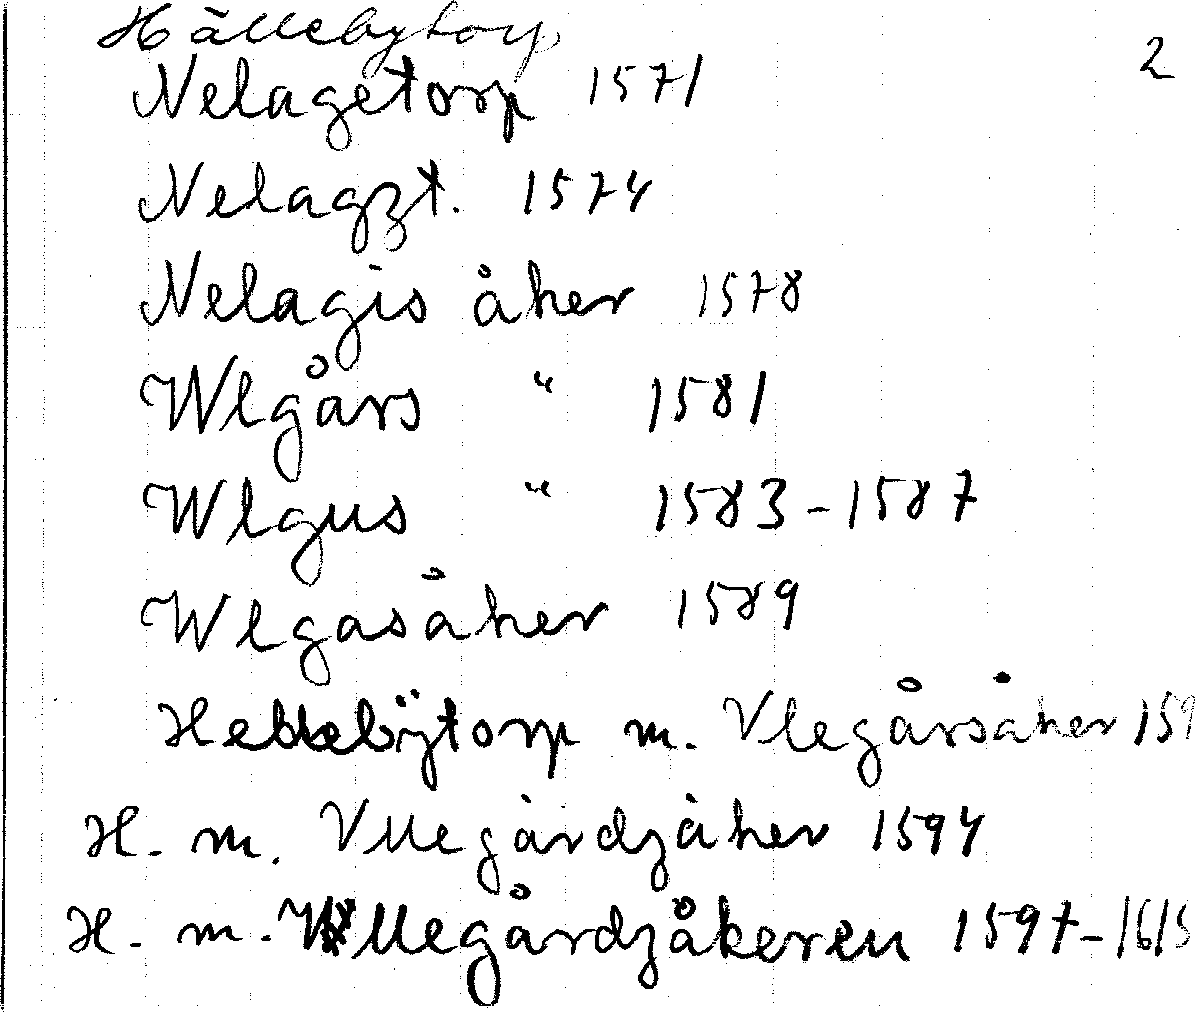 Hällebytorp
2
Nelagetorp 1571
Nelagzt. 1574
Nelagis åker 1578
Wlgårs " 1581
Wlgus " 1583-1587
Wlgasåker 1589
Hellebÿtorp m. Vlegårsåker 159
H. m. Vllegårdzåker 1594
H. m. Vllegårdzåkeren 1597-1615